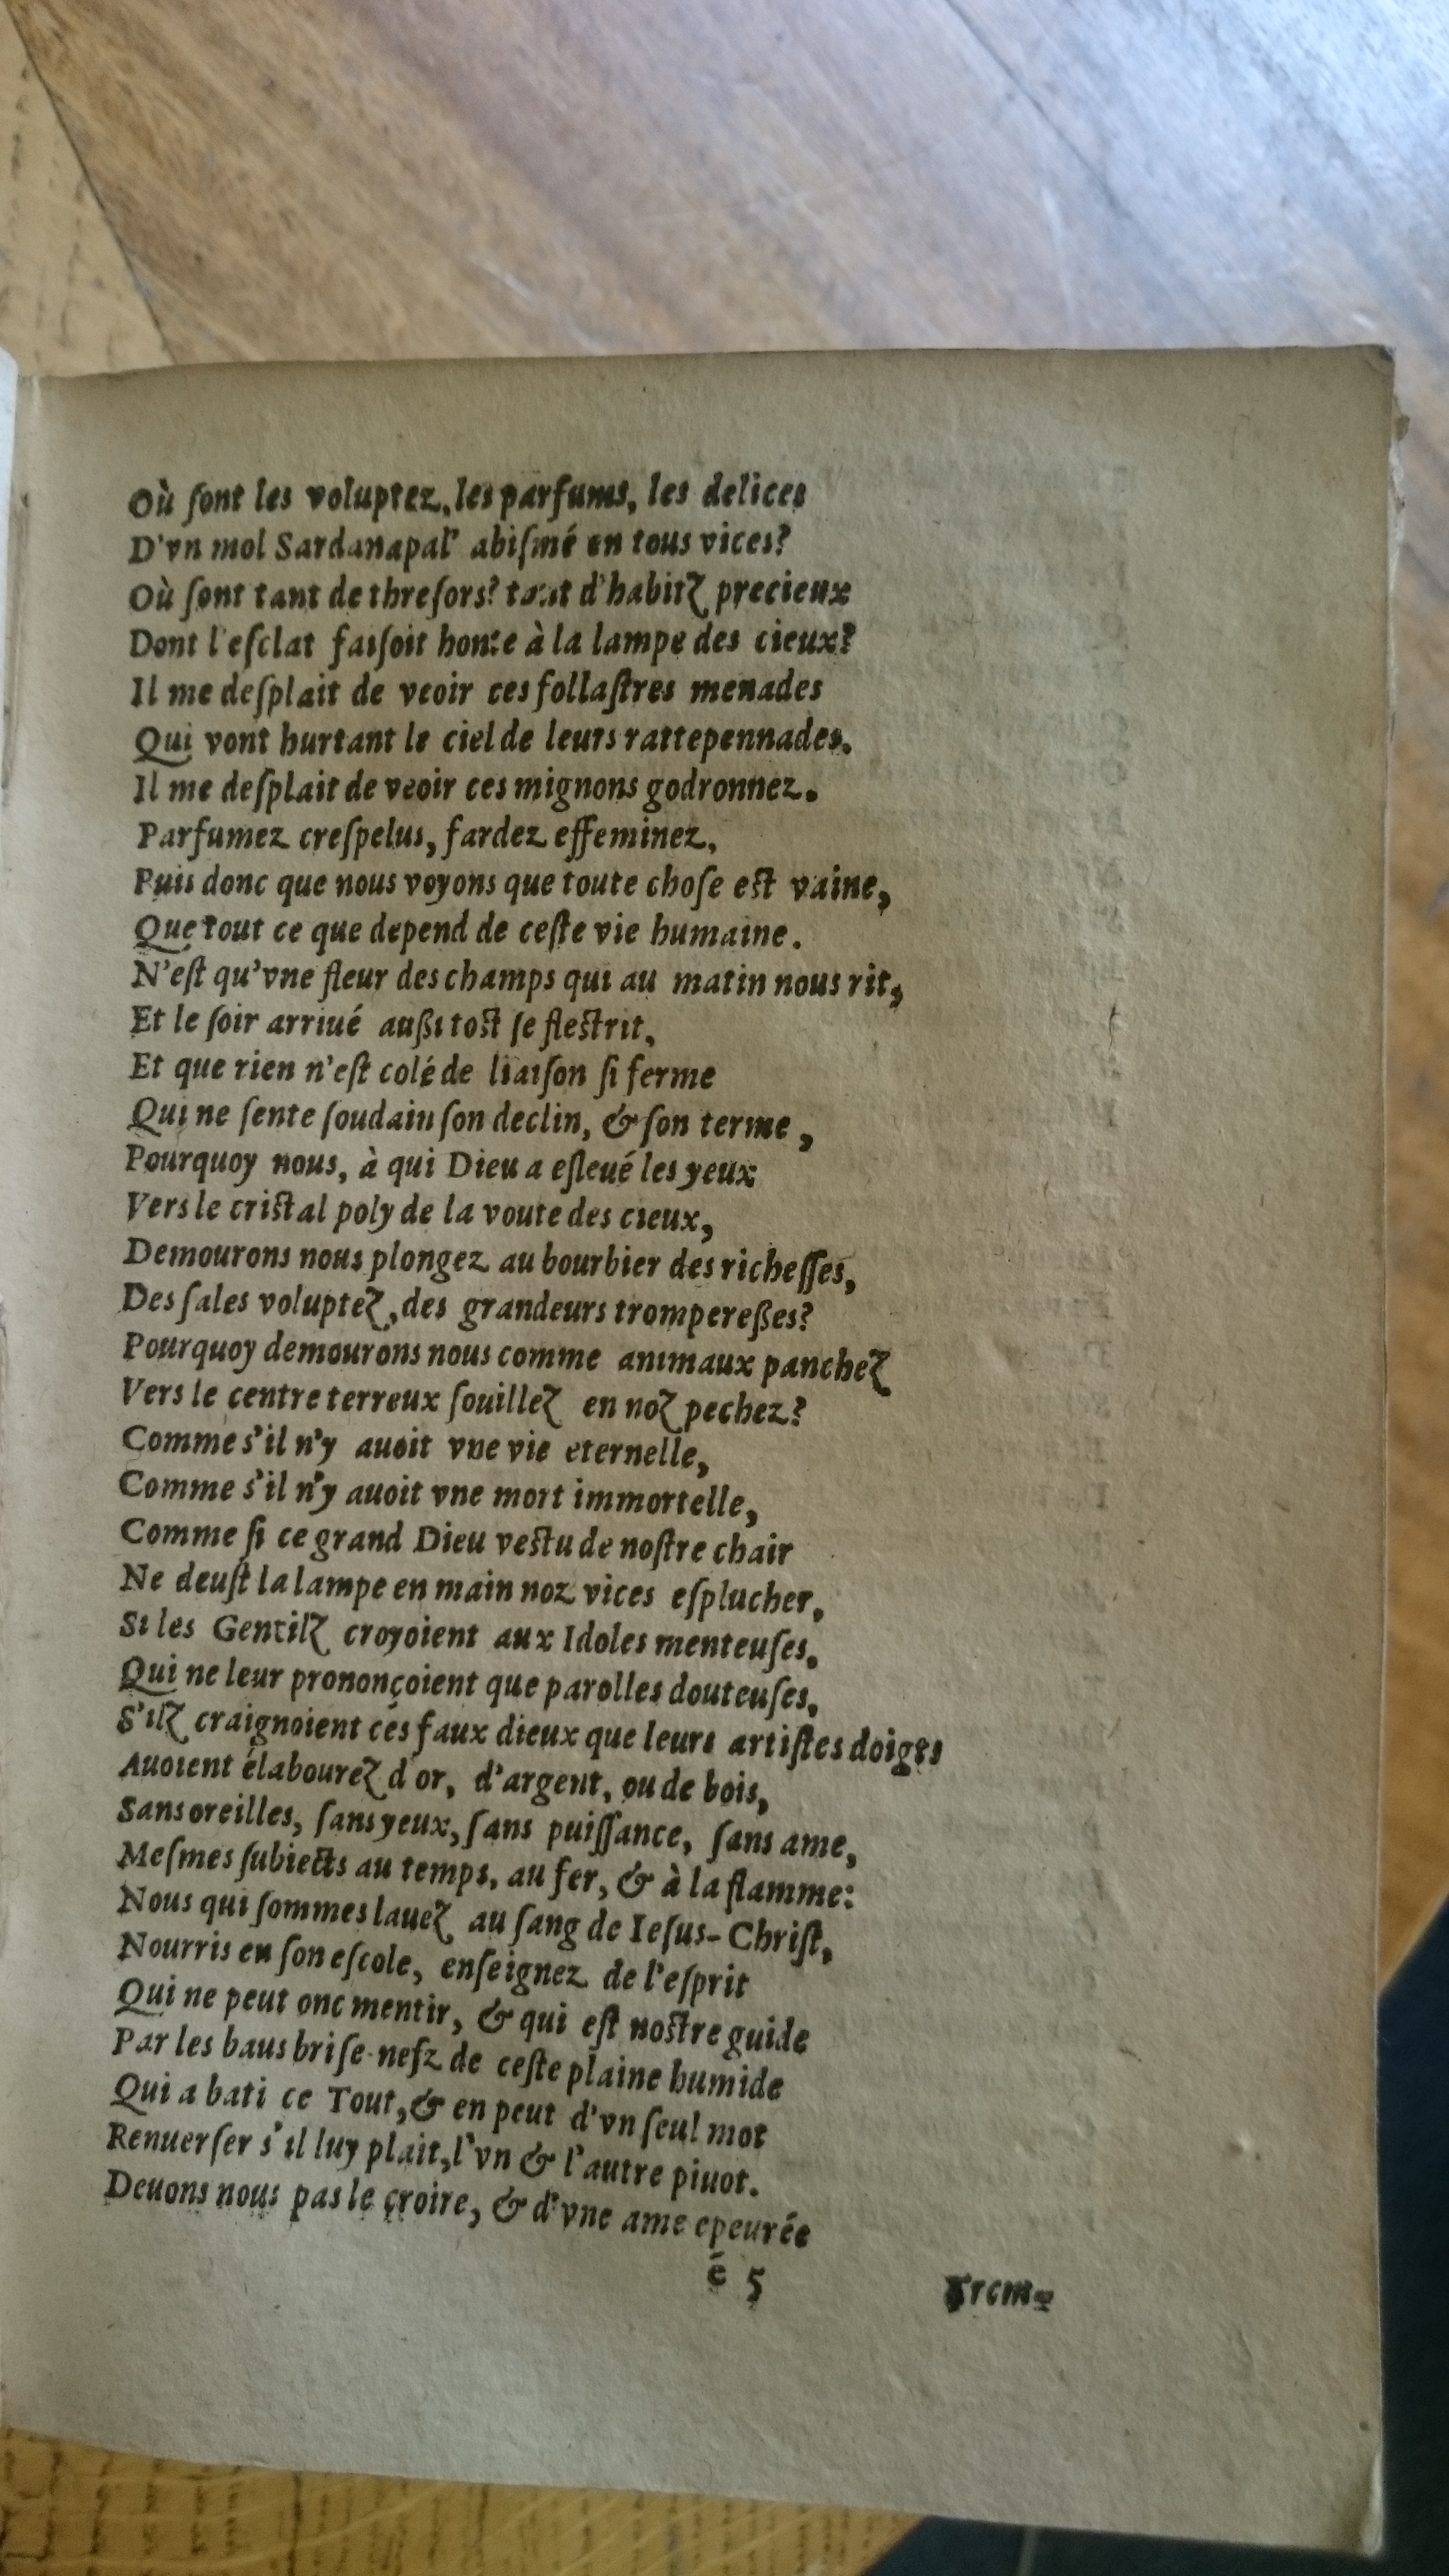 Où ſont les voluptez, les parfums, les delices
D'vn mol Sardanapal' abiſmé en tous vices?
Où ſont tant de threſors? tant d'habitz precieux
Dont l'eſclat faiſoit honte à la lampe des cieux?
Il me deſplait de veoir ces follaſtres menades
Qui vont hurtant le ciel de leurs rattepennades.
Il me deſplait de veoir ces mignons godronnez.
Parfumez creſpelus, fardez effeminez,
Puis donc que nous voyons que toute choſe eſt vaine,
Que tout ce que depend de ceſte vie humaine.
N'eſt qu'vne fleur des champs qui au matin nous rit,
Et le ſoir arriué außi toſt ſe fleſtrit,
Et que rien n'eſt colé de liaiſon ſi ferme
Qui ne ſente ſoudain ſon declin, & ſon terme,
Pourquoy nous, à qui Dieu a eſleué les yeux
Vers le criſtal poly de la voute des cieux,
Demourons nous plongez au bourbier des richeſſes,
Des ſales voluptez, des grandeurs trompereßes?
Pourquoy demourons nous comme animaux panchez
Vers le centre terreux ſouillez en noz pechez?
Comme s'il n'y auoit vne vie eternelle,
Comme s'il n'y auoit vne mort immortelle,
Comme ſi ce grand Dieu veſtu de noſtre chair
Ne deuſt la lampe en main noz vices eſplucher,
Si les Gentilz croyoient aux Idoles menteuſes,
Qui ne leur prononçoient que parolles douteuſes,
S'ilz craignoient ces faux dieux que leurs artiſtes doigts
Auoient élabourez d'or, d'argent, ou de bois,
Sans oreilles, ſans yeux, ſans puiſſance, ſans ame,
Meſmes ſubiects au temps, au fer, & à la flamme:
Nous qui ſommes lauez au ſang de Ieſus-Chriſt,
Nourris en ſon eſcole, enſeignez de l'eſprit
Qui ne peut onc mentir, & qui eſt noſtre guide
Par les baus briſe-nefz de ceſte plaine humide
Qui a bati ce Tout, & en peut d'vn ſeul mot
Renuerſer s'il luy plait, l'vn & l'autre piuot.
Deuons nous pas le croire, & d'vne ame epeurée
é 5 Trem-